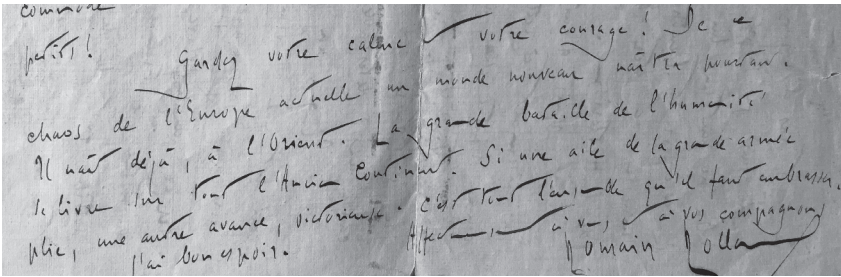 commode
petits !
Gardez votre calme et votre courage ! De ce
chaos de l'Europe actuelle un monde nouveau naîtra pourtant.
Il naît déjà, à l'Orient. La grande bataille de l'humanité
se livre sur tout l'Ancien Continent. Si une aile de la grande armée
plie, une autre avance, victorieuse. C'est tout l'ensemble qu'il faut embrasser.
J'ai bon espoir. Affectueusement à vous et à vos compagnons
Romain Rolland